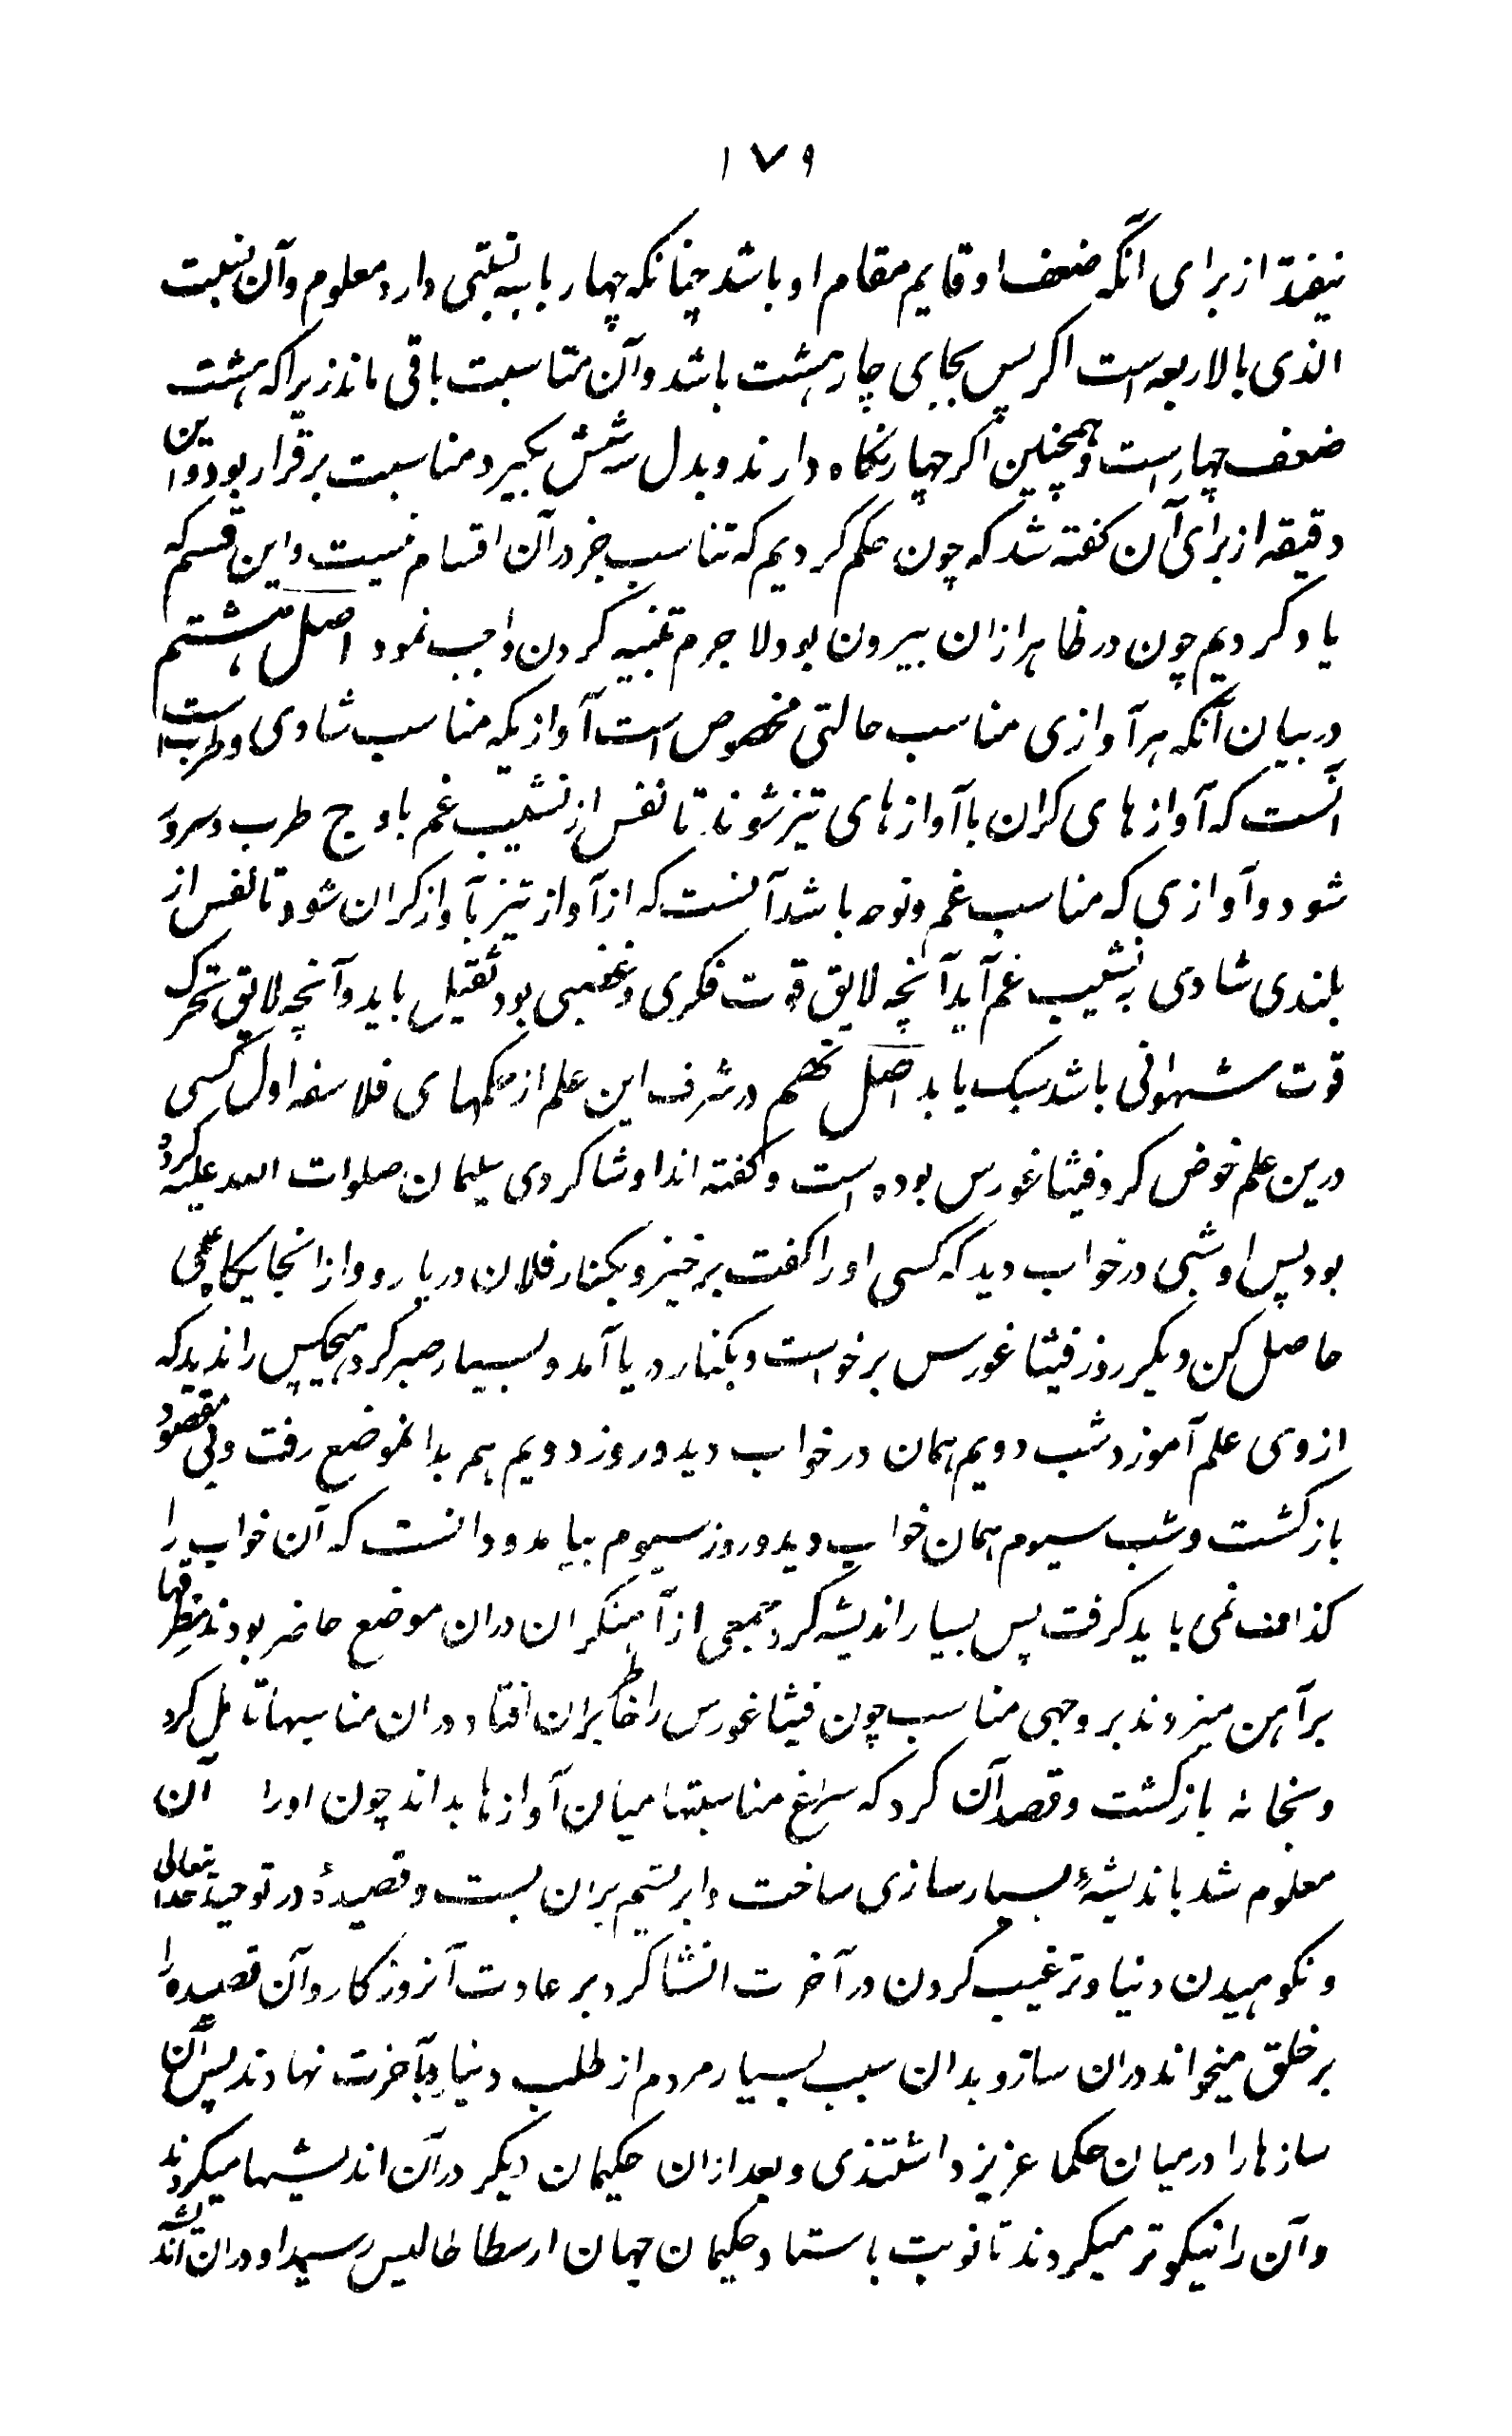 ۱۷۹
نیفتد از برای آنکه ضعف او قایم مقام او باشد چنانکه چهار با سه نسبتی دارد معلوم و آن نسبت
الذی بالاربعه است اکر پس بجای چار هشت باشد و آن مناسبت باقی ماند زیرا که هشت
ضعف چهار است و همچنین اکر چهار نکاه دارند و بدل سه شش بکیرد مناسبت برقرار بود و این
دقیقه از برای آن کفته شد که چون حکم کردیم که تناسب جز در آن اقسام نیست و این قسم که
یاد کردیم چون در ظاهر ازان بیرون بود لاجرم تنبیه کردن واجب نمود اصل هشتم
در بیان آنکه هر آوازی مناسب حالتی مخصوص است آوازیکه مناسب شادی و طرب است
آنست که آوازهای کران با آوازهای تیز شوند تا نفس از نشیب غم باوج طرب و سرور
شود و آوازی که مناسب غم و نوحه باشد آنست که از آواز تیز بآواز کران شود تا نفس از
بلندی شادی به نشیب غم آید آنچه لایق قوت فکری و غضبی بود ثقیل باید و آنچه لایق تحرک
قوت شهوانی باشد سبک باید اصل نهم در شرف این علم از حکمهای فلاسفه اول کسی
درین علم خوض کرد فیثاغورس بوده است و کفته اند او شاکردی سلیمان صلوات الله علیه کرده
بود پس او شبی در خواب دید که کسی او را کفت برخیز و بکنار فلان دریا رو و از انجا یکا علمی
حاصل کن دیکر روز فیثاغورس برخواست و بکنار دریا آمد و بسیار صبر کرد هیچکس را ندید که
از وی علم آموزد شب دویم همان در خواب دید و روز دویم هم بدانموضع رفت و بی مقصود
بازکشت و شب سیوم همان خواب دید و روز سیوم بیامد و دانست که آن خواب را
کذاف نمی باید کرفت پس بسیار اندیشه کرد جمعی از آهنکران دران موضع حاضر بودند مطرقها
بر آهن میزدند بر وجهی مناسب چون فیثاغورس را خاطر بران افتاد دران مناسبها تامل کرد
و بخانه بازکشت و قصد آن کرد که سراغ مناسبتها میان آوازها بداند چون او را آن
معلوم شد باندیشهٔ بسیار سازی ساخت و ابریشم بران بست و قصیدهٔ در توحید خدایتعالی
و نکوهیدن دنیا و ترغیب کردن در آخرت انشا کرد بر عادت آنروزکار و آن قصیده را
بر خلق میخواند دران ساز و بدان سبب بسیار مردم از طلب دنیا رو بآخرت نهادند پس آن
سازها را در میان حکما عزیز داشتندی و بعد ازان حکیمان دیکر در آن اندیشها میکردند
و آن را نیکوتر میکردند تا نوبت باستاد حکیمان جهان ارسطاطالیس رسید او دران اندیشه